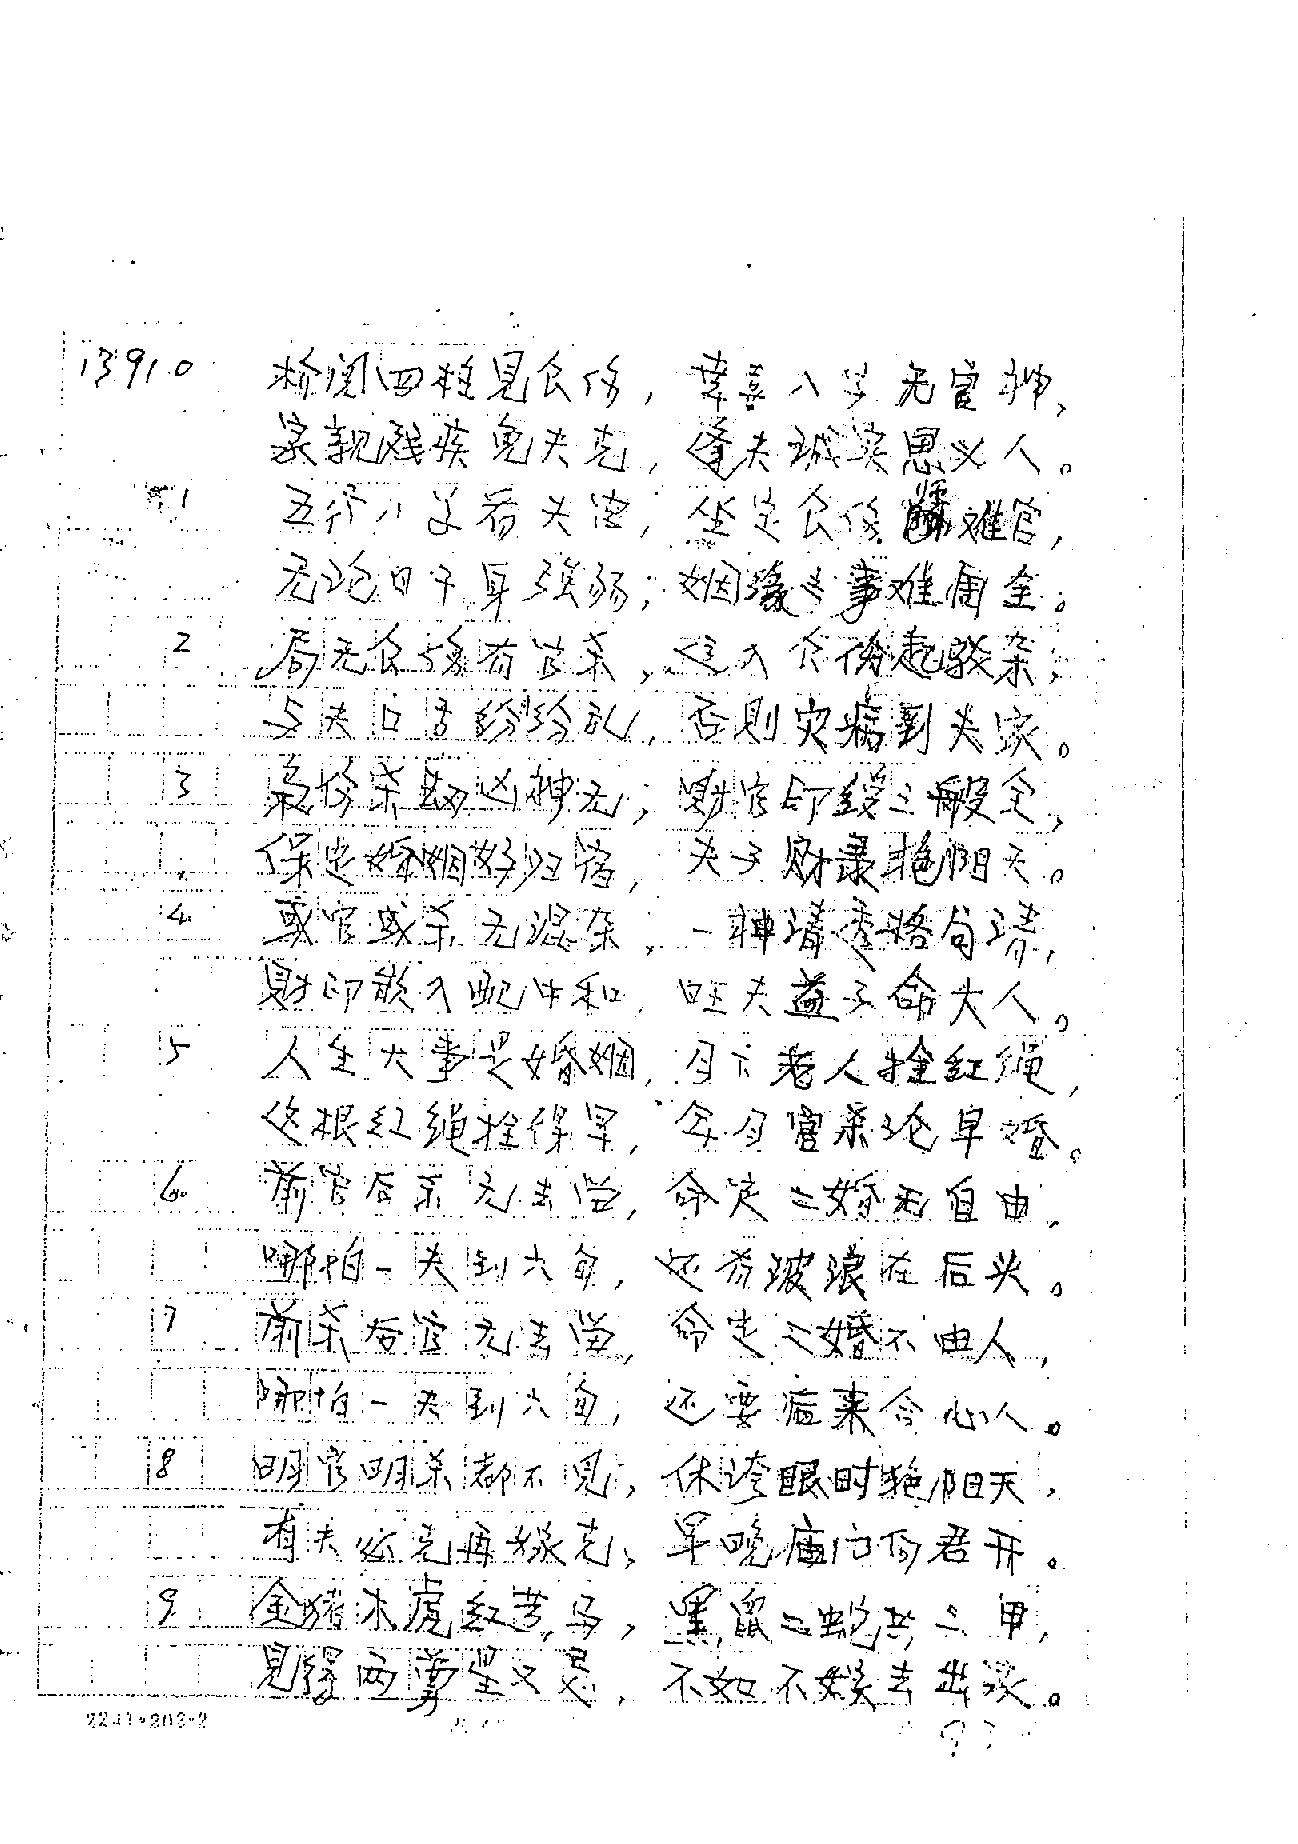 13910 检阅四柱见食伤，幸喜八字无官神，
家亲残疾免夫克，逢夫诚实恩义人。
1 五行八字看夫宫，坐定食伤难官，
无论日干身强弱；姻缘事难周全。
2 局无食伤有官杀，运入食伤起驳杂；
与夫口舌纷纷乱，否则灾病到夫家。
3 枭伤杀劫凶神无；财官印绶三般全，
保定婚姻好归宿，夫子财录艳阳天。
4 或官或杀无混杂，一神清秀格局清，
财印嵌入配中和，旺夫益子命大人。
5 人生大事是婚姻，月下老人拴红绳，
这根红绳拴保早，年月官杀论早婚。
6 前官后杀无去留，命定二婚无自由，
哪怕一夫到六旬，还有波浪在后头。
7 前杀后官无去留，命定二婚不由人，
哪怕一夫到六旬，还要后来合心人。
8 明官明杀都不见，休夸眼时艳阳天，
有夫必克再嫁克，早晚庙门向君开。
9 金猪木虎红苦马，黑鼠二蛇共三甲，
见得两尊星又忌，不如不嫁去出家。
2241·202·2